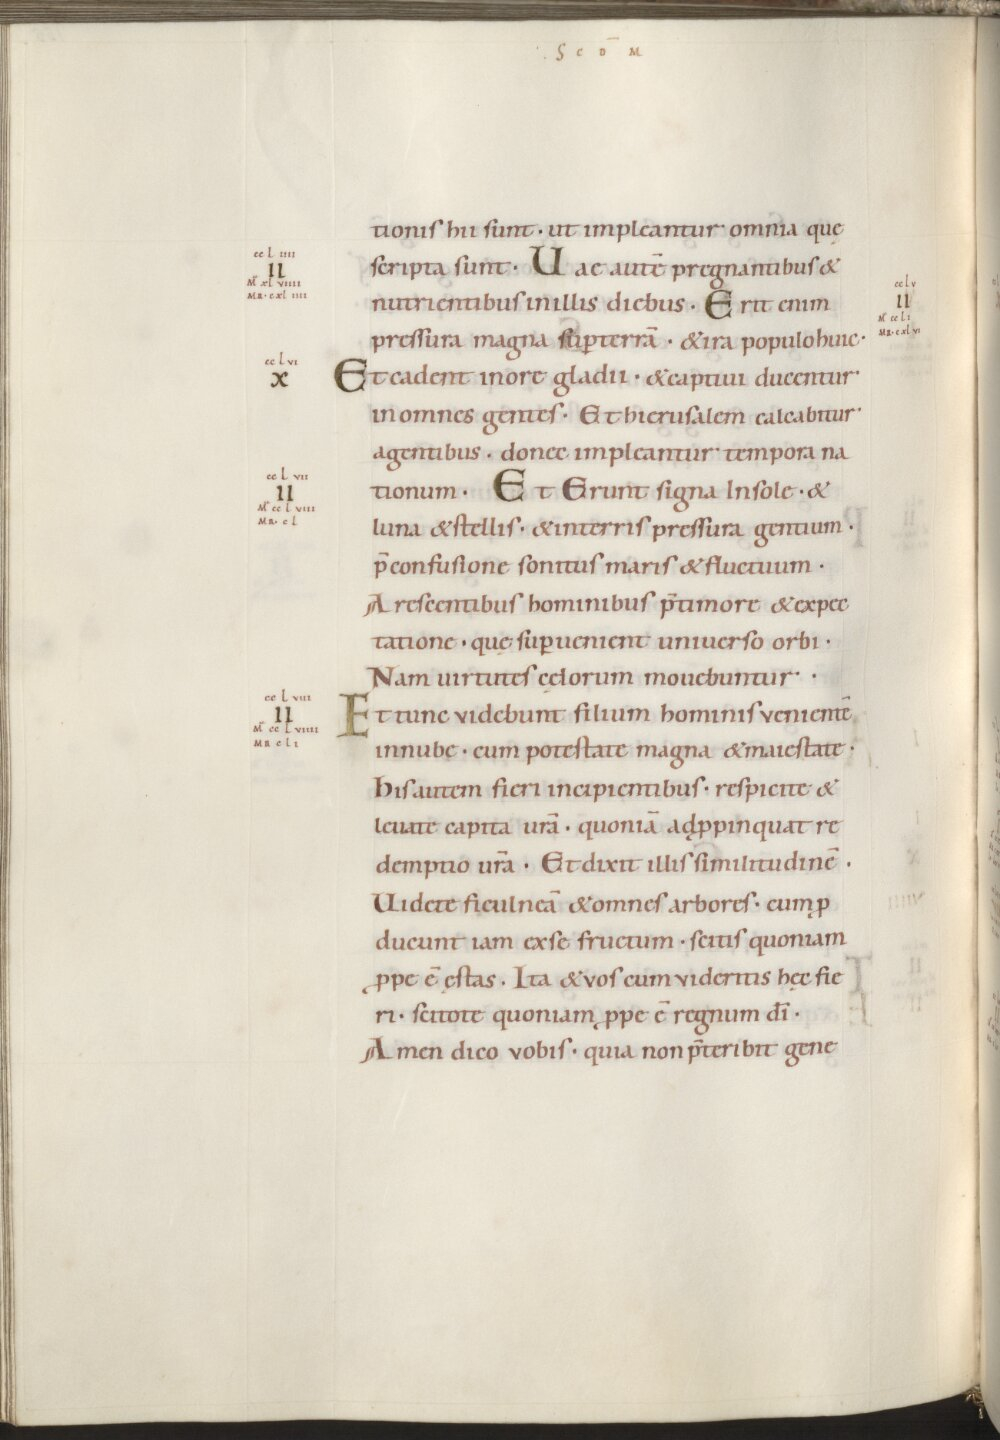 Scdm̄
tionis hii sunt · ut impleantur omnia quę
scripta sunt · Uae autē pregnantibus &
nutrientibus in illis diebus · Erit enim
pressura magna sup̄ terrā · & ira populo huic ·
Et cadent in ore gladii · & captiui ducentur
in omnes gentes · Et hierusalem calcabitur
a gentibus · donec impleantur tempora na
tionum · Et Erunt signa In sole · &
luna & stellis · & in terris pressura gentium ·
p̄ confusione sonitus maris & fluctuum ·
Arescentibus hominibus p̄ timore & expec
tatione · quę sup̄uenient universo orbi ·
Nam uirtutes cęlorum movebuntur ·
Et tunc videbunt filium hominis venientē
in nube · cum potestate magna & maiestate ·
his autem fieri incipientibus · respicite &
levate capita ur̄a · quoniā adꝓpinquat re
demptio ur̄a · Et dixit illis similitudinē ·
Uidete ficulneā & omnes arbores · cum ꝓ
ducunt iam ex se fructum · scitis quoniam
ꝓpe ē ęstas · Ita & vos cum videritis hęc fie
ri · scitote quoniam ꝓpe ē regnum dī ·
Amen dico vobis · quia non p̄teribit gene
cc l iiii
II
Mr cc l v
II
Mr cc l i
MR · c xl vi
cc l vi
X
cc l vii
II
Mr cc l viii
MR · c l
cc l viii
II
Mr cc l viiii
MR c l i